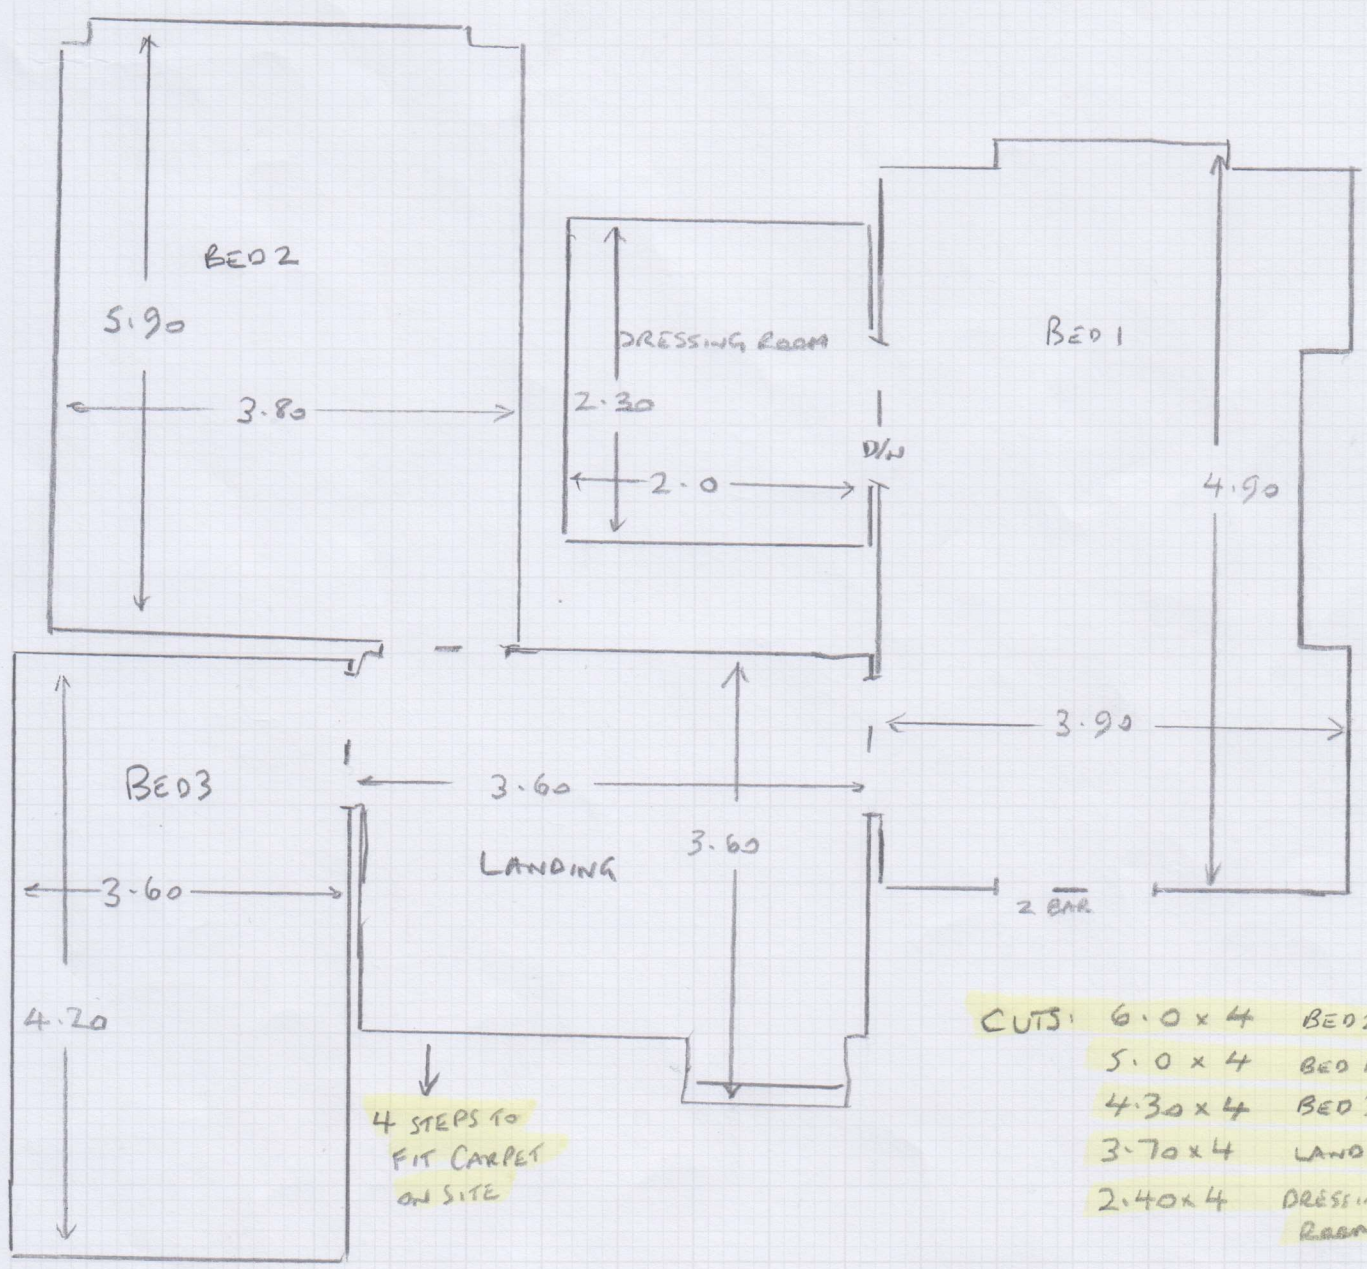 BED 2
5.90
3.80
DRESSING ROOM
2.30
2.0
D/N
BED 1
4.90
3.90
2 BAR
BED3
3.60
4.20
3.60
3.60
LANDING
4 STEPS TO
FIT CARPET
ON SITE
CUTS: 6.0 x 4 BED
5.0 x 4 BED
4.30 x 4 BED
3.70 x 4 LAND
2.40 x 4 DRESSIN
ROOM